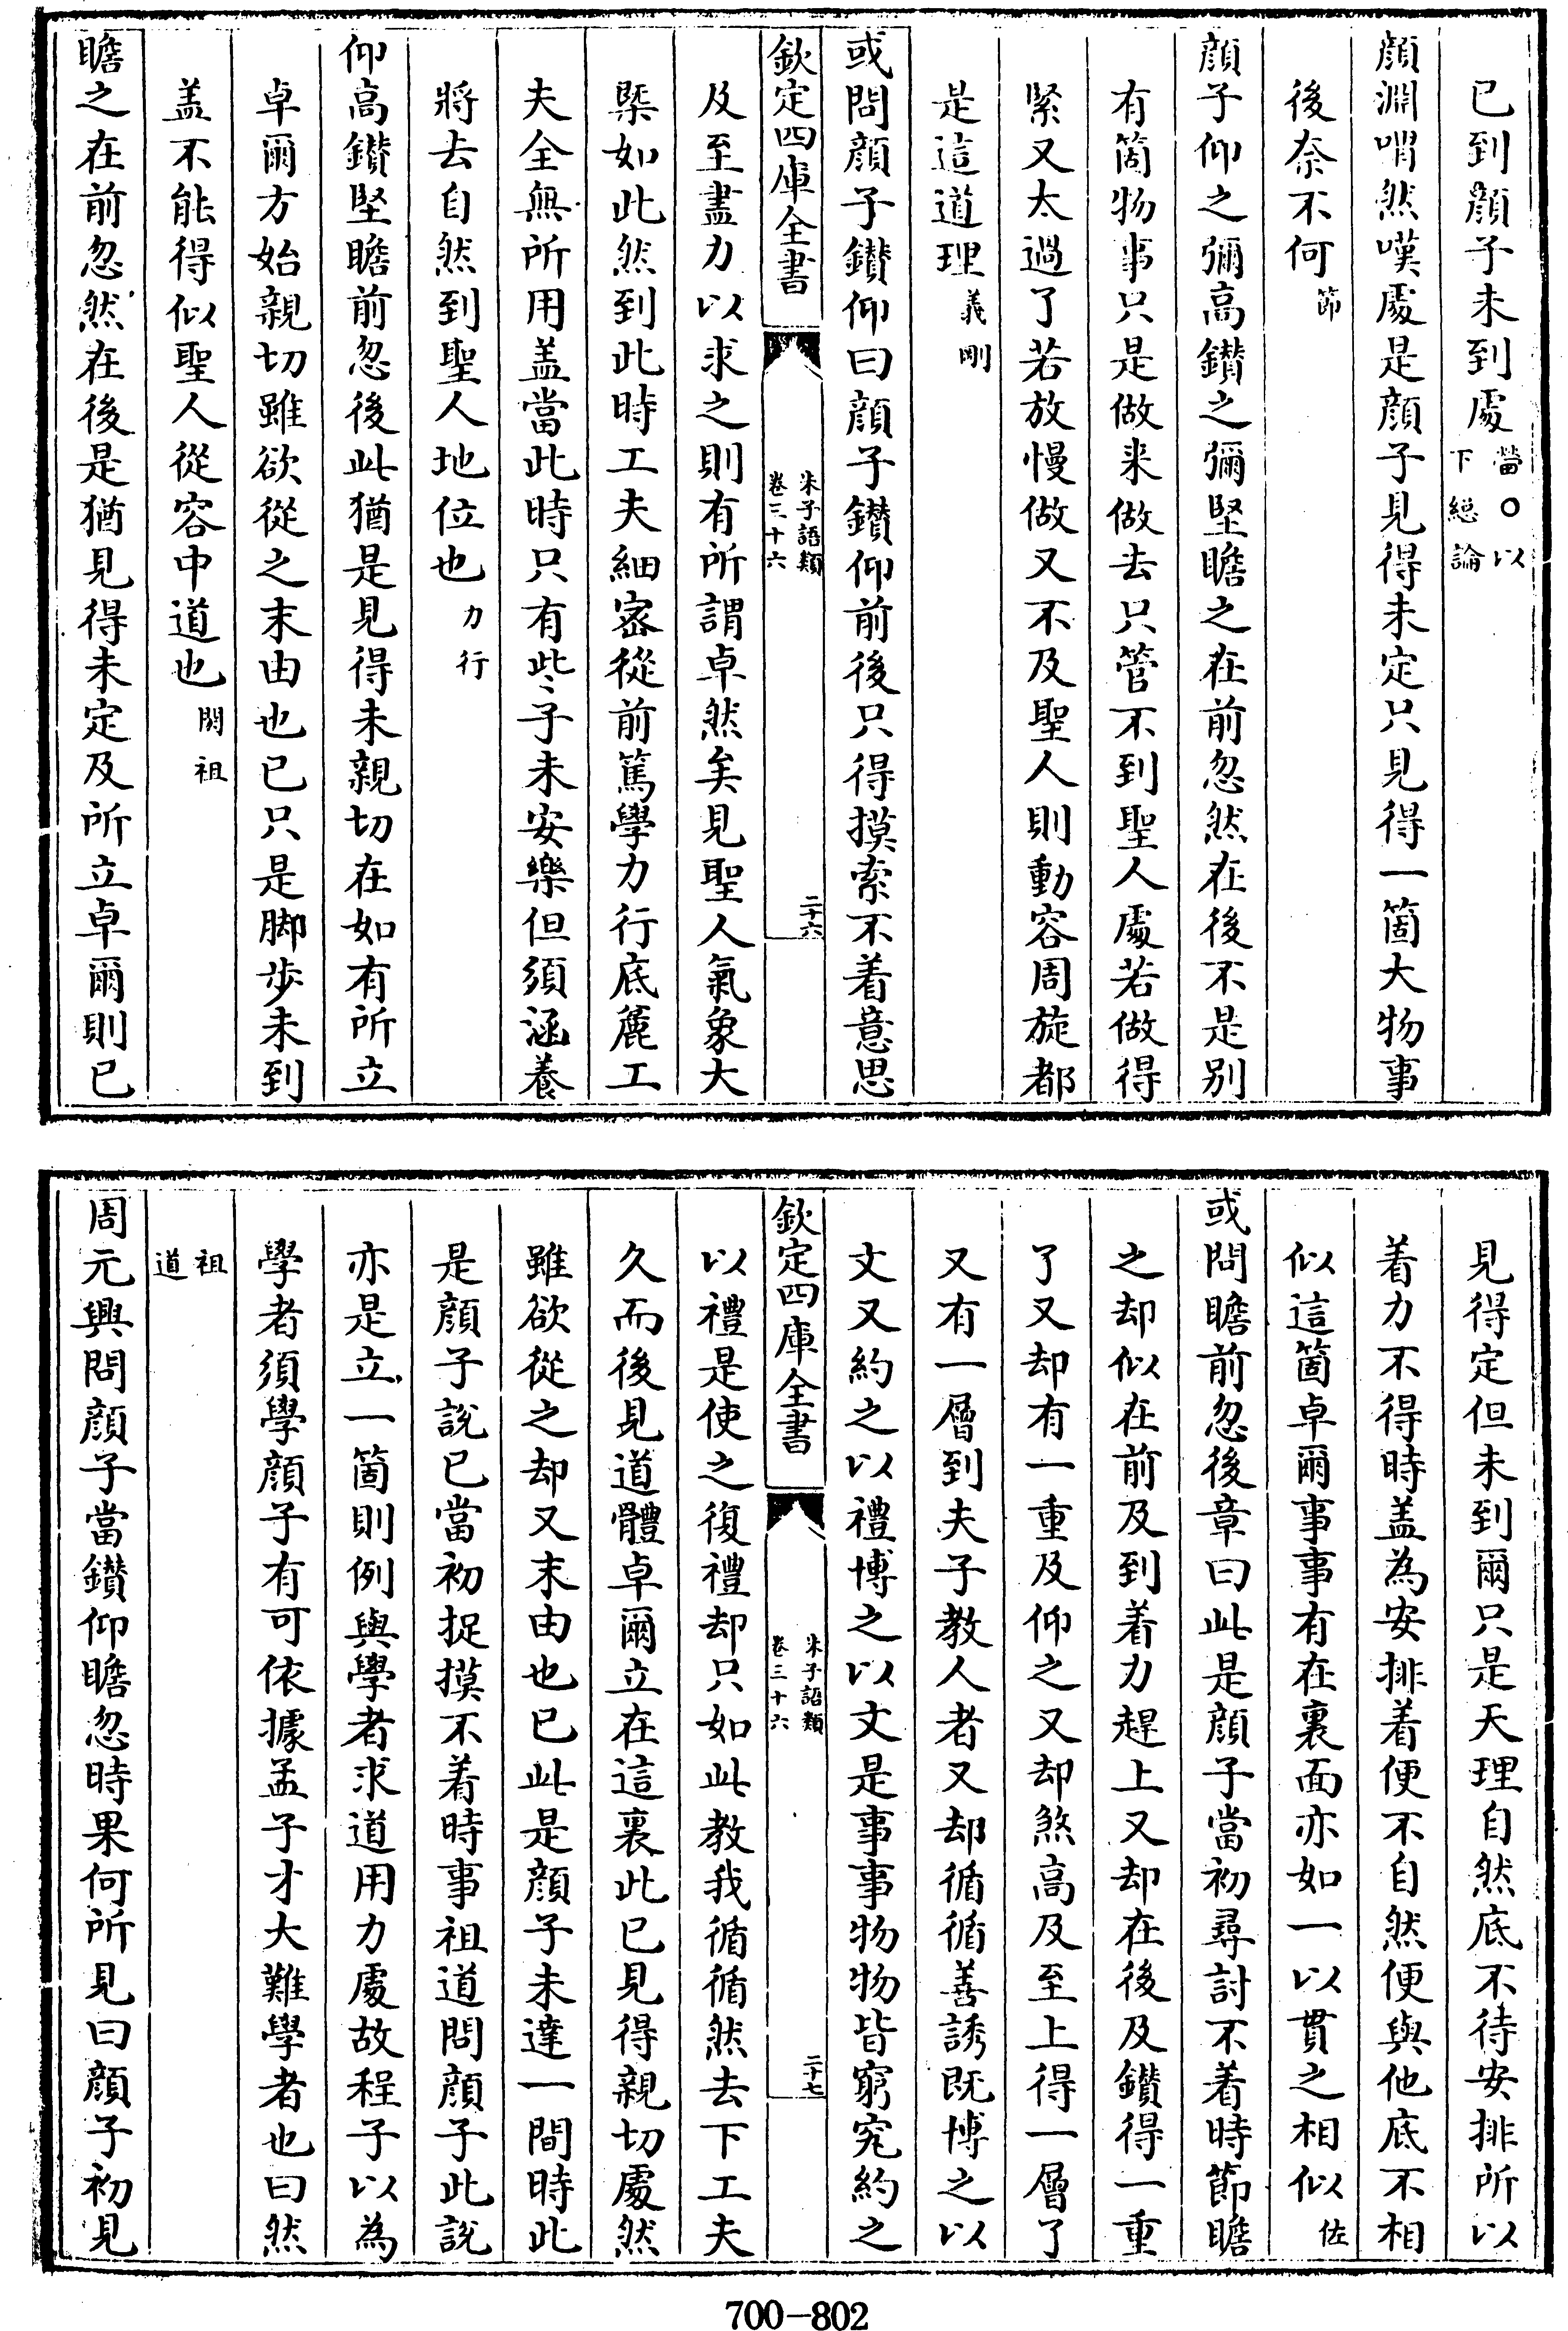 已到顔子未到處㽦○以下緫論
顔淵喟然嘆處是顔子見得未定只見得一箇大物事
後奈不何節
顔子仰之彌高鑚之彌堅瞻之在前忽然在後不是别
有箇物事只是做来做去只管不到聖人處若做得
緊又太過了若放慢做又不及聖人則動容周旋都
是這道理義剛
或問顔子鑚仰曰顔子鑚仰前後只得摸索不着意思
欽定四庫全書
朱子語類
卷三十六
二十六
及至盡力以求之則有所謂卓然矣見聖人氣象大
槩如此然到此時工夫細宻從前篤學力行底麄工
夫全無所用盖當此時只有些子未安樂但須涵養
將去自然到聖人地位也力行
仰高鑚堅瞻前忽後此猶是見得未親切在如有所立
卓爾方始親切雖欲從之末由也已只是脚步未到
盖不能得似聖人從容中道也閎祖
瞻之在前忽然在後是猶見得未定及所立卓爾則已
見得定但未到爾只是天理自然底不待安排所以
着力不得時盖為安排着便不自然便與他底不相
似這箇卓爾事事有在裏面亦如一以貫之相似佐
或問瞻前忽後章曰此是顔子當初尋討不着時節瞻
之却似在前及到着力趕上又却在後及鑚得一重
了又却有一重及仰之又却煞高及至上得一層了
又有一層到夫子教人者又却循循善誘既博之以
文又約之以禮博之以文是事事物物皆窮究約之
欽定四庫全書
朱子語類
卷三十六
二十七
以禮是使之復禮却只如此教我循循然去下工夫
久而後見道體卓爾立在這裏此已見得親切處然
雖欲從之却又末由也已此是顔子未達一間時此
是顔子說已當初捉摸不着時事祖道問顔子此説
亦是立一箇則例與學者求道用力處故程子以為
學者須學顔子有可依據孟子才大難學者也曰然
祖道
周元興問顔子當鑚仰瞻忽時果何所見曰顔子初見
700-802